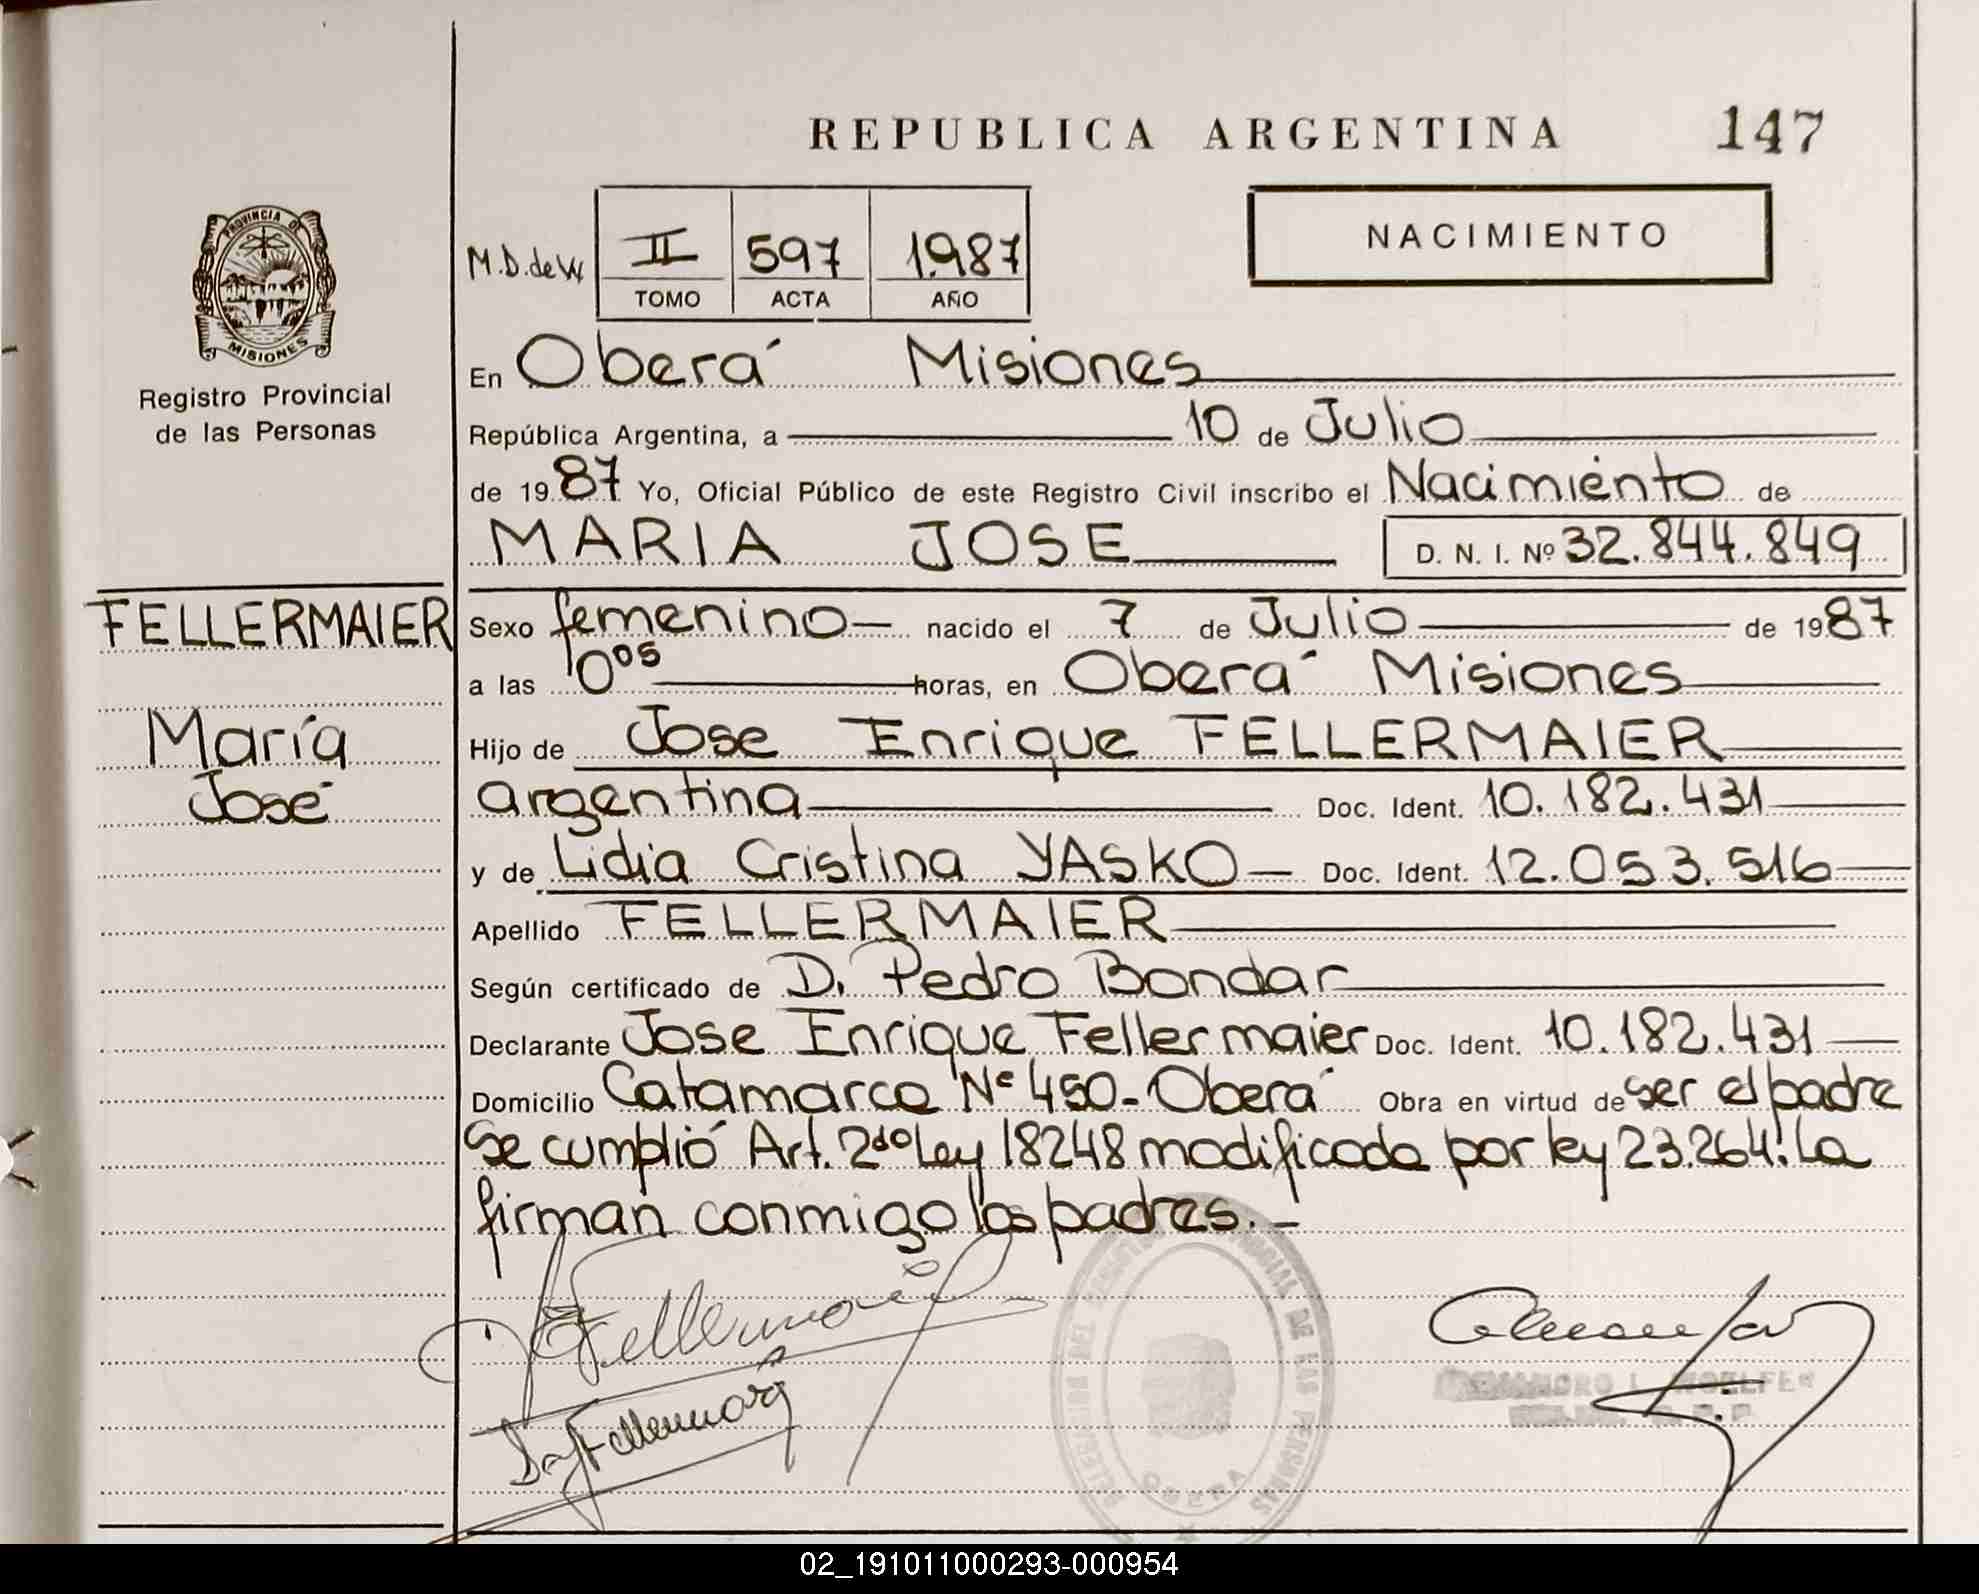 REPUBLICA ARGENTINA 147
NACIMIENTO
M.D. de W II 597 1987
TOMO ACTA AÑO
PROVINCIA DE
MISIONES
Registro Provincial
de las Personas
En Oberá Misiones
República Argentina, a 10 de Julio
de 1987 Yo, Oficial Público de este Registro Civil inscribo el Nacimiento de
MARIA JOSE D. N. I. Nº 32.844.849
FELLERMAIER
María
José
Sexo femenino nacido el 7 de Julio de 1987
a las 0⁰⁵ horas, en Oberá Misiones
Hijo de Jose Enrique FELLERMAIER
argentina Doc. Ident. 10.182.431
y de Lidia Cristina YASKO Doc. Ident. 12.053.516
Apellido FELLERMAIER
Según certificado de D. Pedro Bondar
Declarante Jose Enrique Fellermaier Doc. Ident. 10.182.431
Domicilio Catamarca Nº 450-Oberá Obra en virtud de ser el padre
Se cumplió Art. 2do Ley 18248 modificada por ley 23.264. La
firman conmigo los padres.-
OBERA
02_191011000293-000954